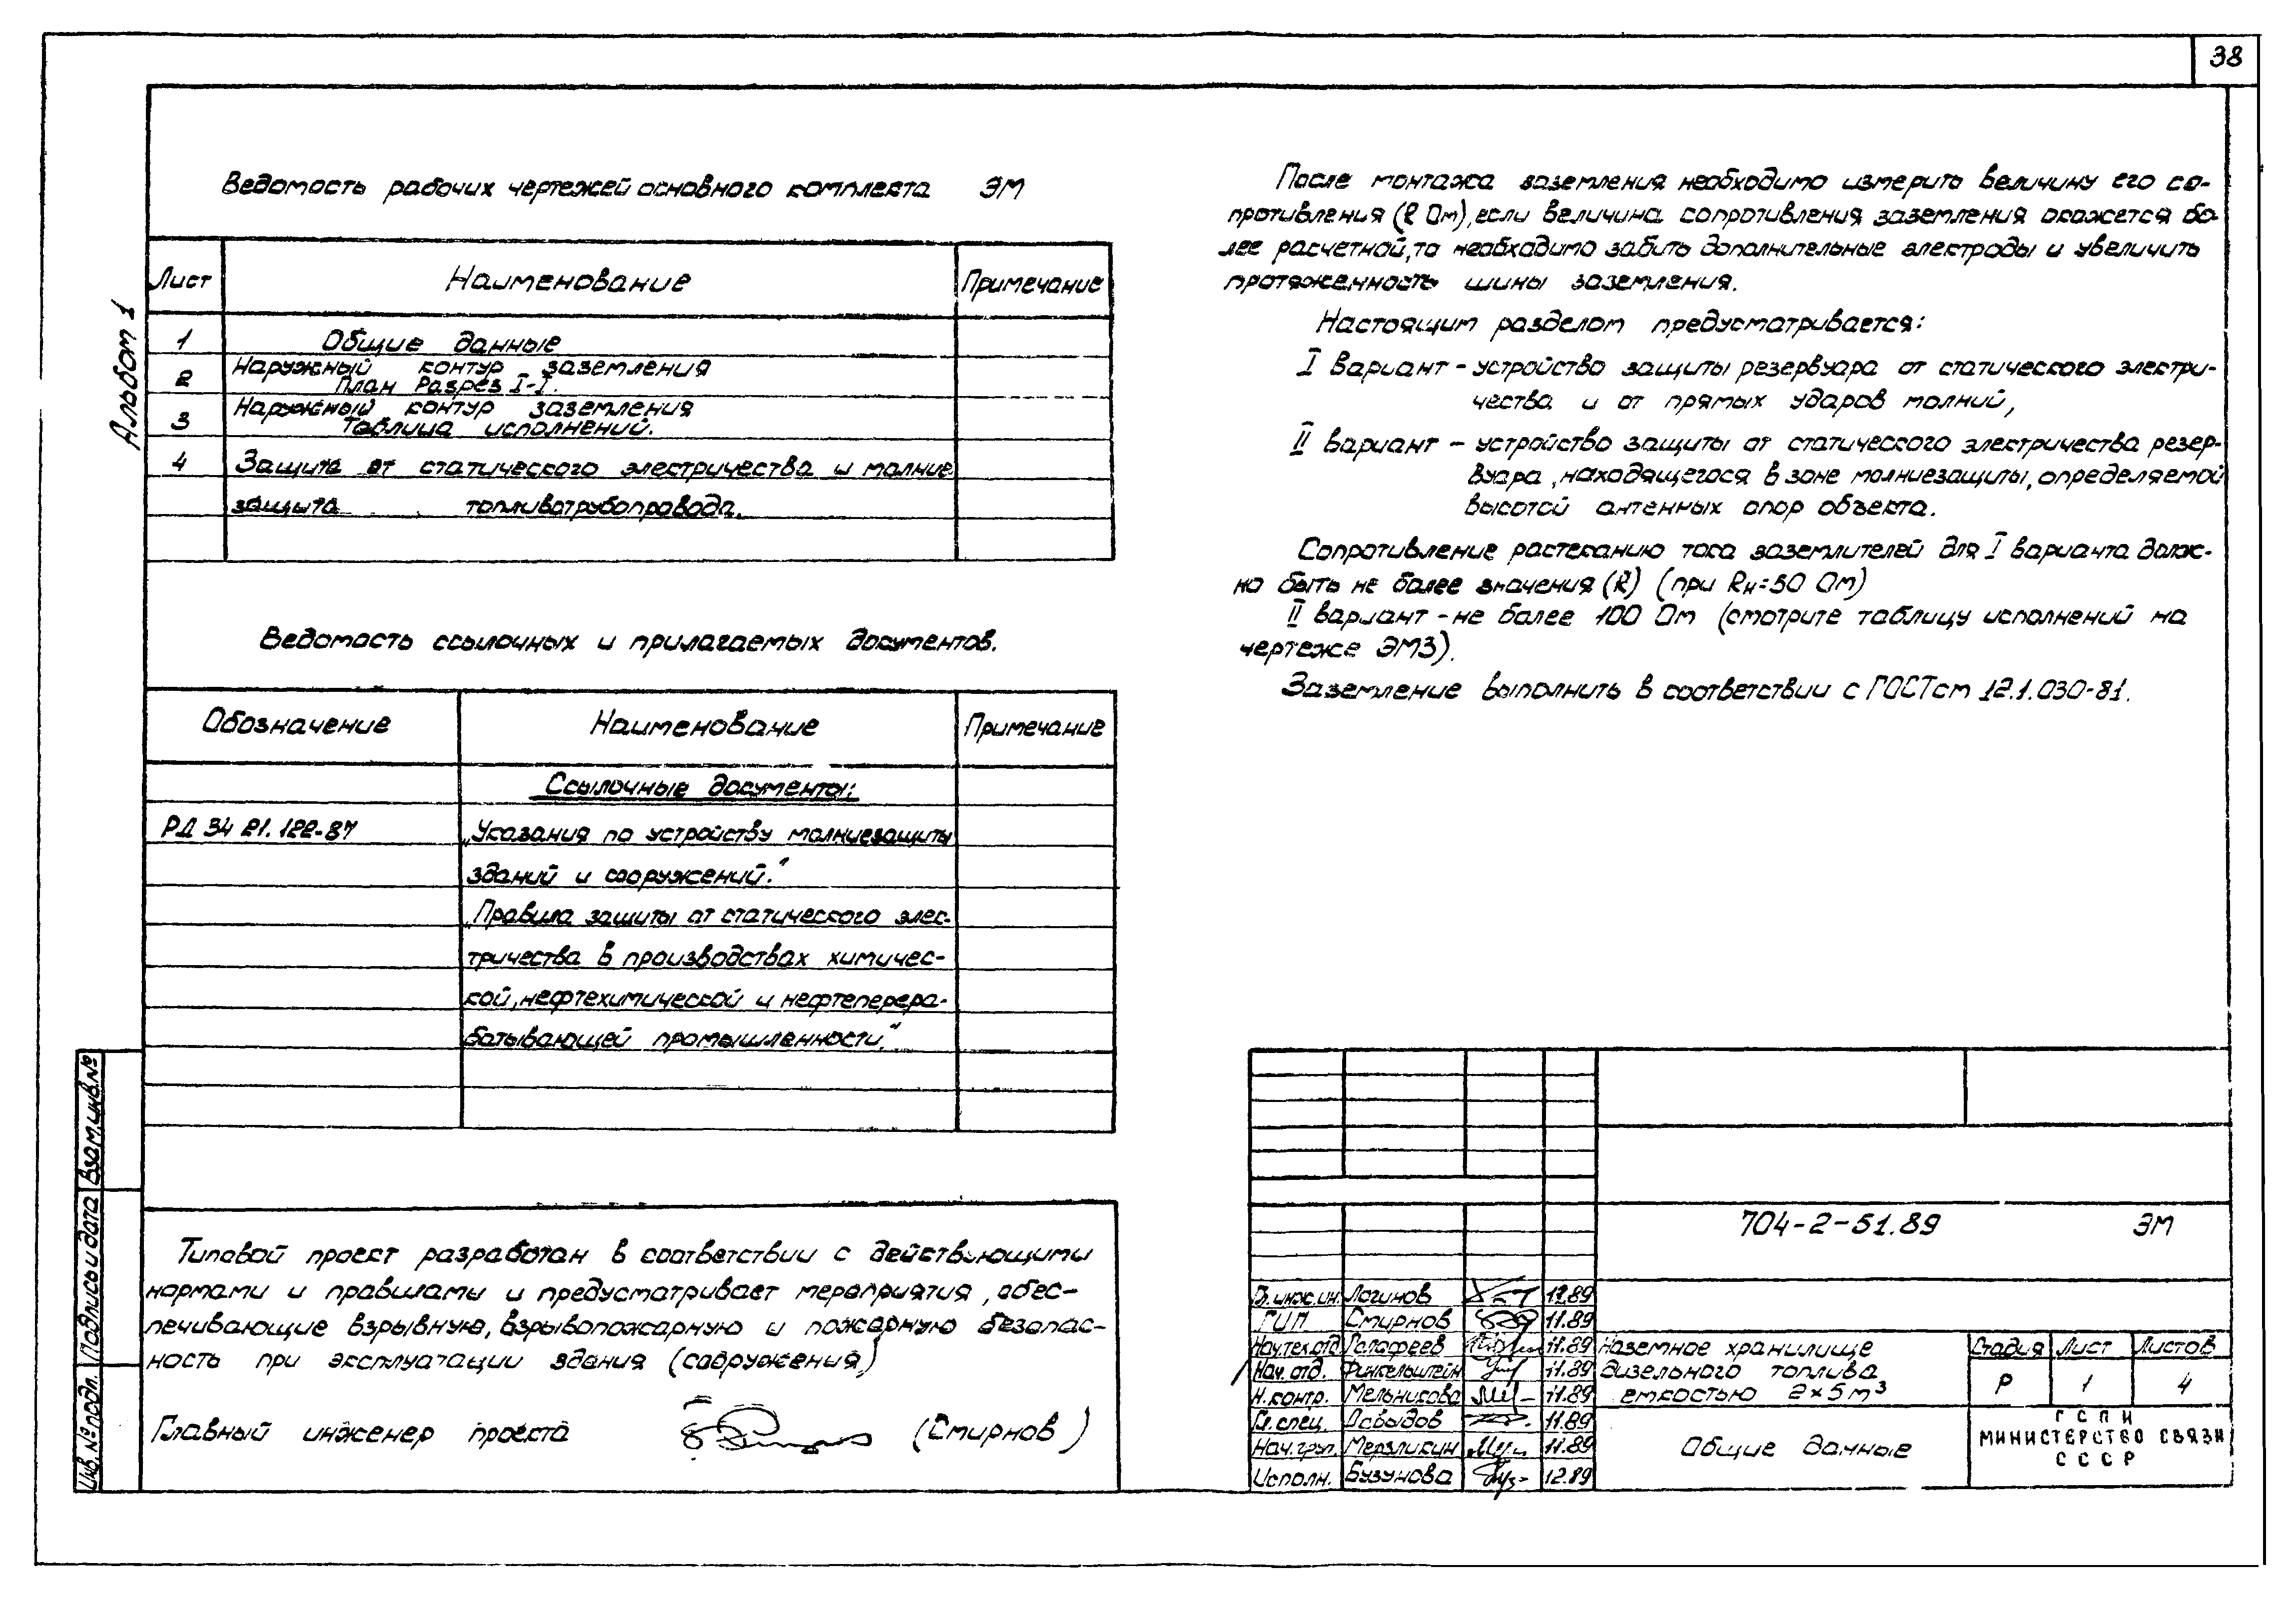 38
Альбом 1
Ведомость рабочих чертежей основного комплекта ЭМ
Лист Наименование Примечание
1 Общие данные
2 Наружный контур заземления
План Разрез I-I.
3 Наружный контур заземления
Таблица исполнений.
4 Защита от статического электричества и молние
защита топливотрубопровода.
Ведомость ссылочных и прилагаемых документов.
Обозначение Наименование Примечание
Ссылочные документы:
РД 34 21.122-87 „Указания по устройству молниезащиты
зданий и сооружений."
„Правила защиты от статического элек-
тричества в производствах химичес-
кой, нефтехимической и нефтеперера-
батывающей промышленности."
Типовой проект разработан в соответствии с действующими
нормами и правилами и предусматривает мероприятия, обес-
печивающие взрывную, взрывопожарную и пожарную безопас-
ность при эксплуатации здания (сооружения)
Главный инженер проекта (Смирнов)
После монтажа заземления необходимо измерить величину его со-
противления (R Ом), если величина сопротивления заземления окажется бо
лее расчетной, то необходимо забить дополнительные электроды и увеличить
протяженность шины заземления.
Настоящим разделом предусматривается:
I вариант - устройство защиты резервуара от статического электри-
чества и от прямых ударов молний,
II вариант - устройство защиты от статического электричества резер-
вуара, находящегося в зоне молниезащиты, определяемой
высотой антенных опор объекта.
Сопротивление растеканию тока заземлителей для I варианта долж-
но быть не более значения (R) (при Rн=50 Ом)
II вариант - не более 100 Ом (смотрите таблицу исполнений на
чертеже ЭМ3).
Заземление выполнить в соответствии с ГОСТом 12.1.030-81.
704-2-51.89 ЭМ
Гл.инж.ин. Логинов 12.89
ГИП Смирнов 11.89
Нач.тех.отд Голофеев 11.89
Нач.отд. Финкельштейн 11.89
Н.контр. Мельникова 11.89
Гл.спец. Давыдов 11.89
Нач.груп. Мерзликин 11.89
Исполн. Бузунова 12.89
Наземное хранилище
дизельного топлива
емкостью 2×5 м³
Стадия Лист Листов
Р 1 4
Общие данные
ГСПИ
МИНИСТЕРСТВО СВЯЗИ
СССР
Взам.инв.№
Подпись и дата
Инв.№ подл.